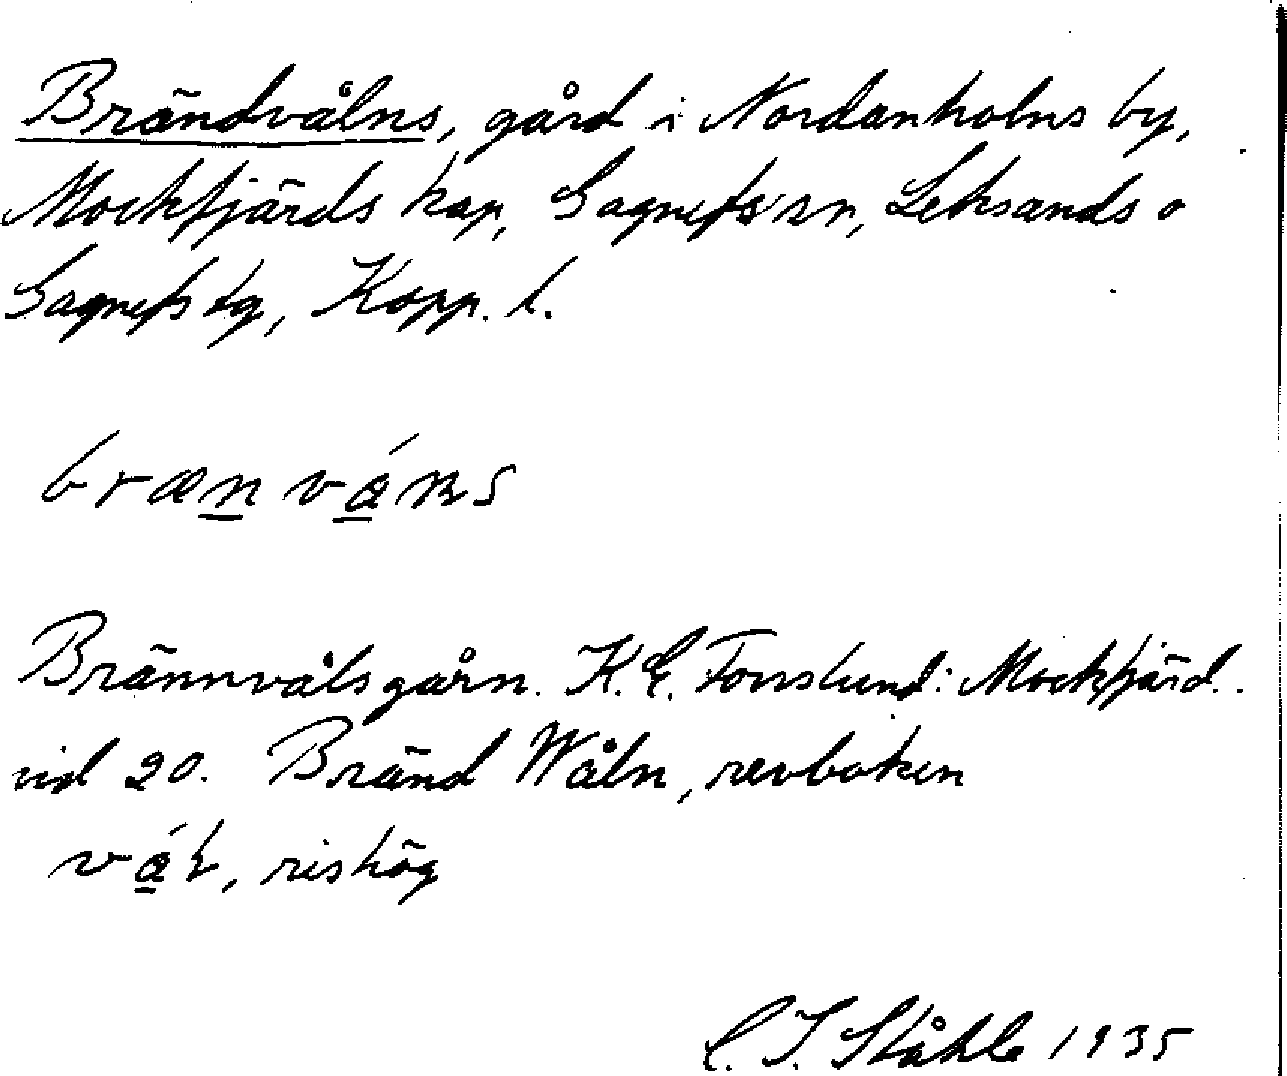 Brändvålns, gård i Nordanholns by,
Mockfjärds kap, Gagnefs sn, Leksands o
Gagnefs tg, Kopp. l.
Brännvålsgårn. K.E. Forslund: Mockfjärd.
sid 20. Bränd Wåln, revboken
rishög
C. I. Ståhle 1935